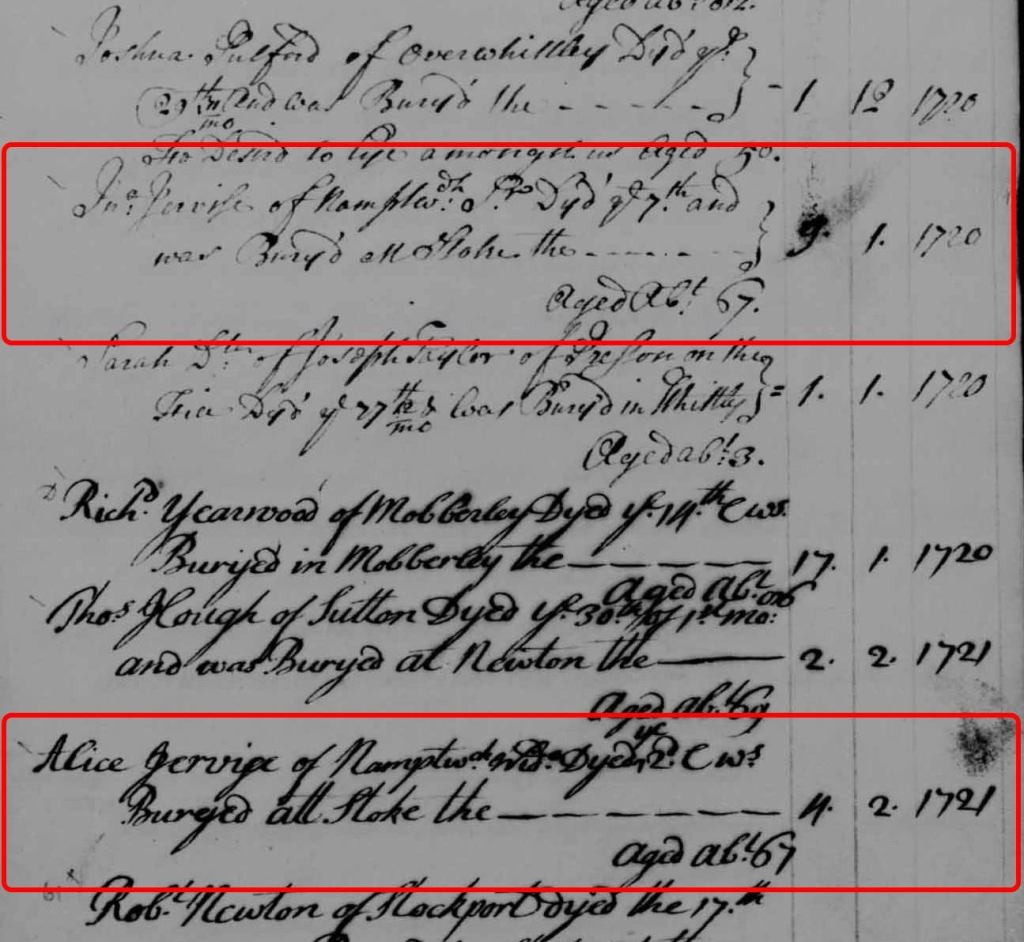 Aged ab.t 82.
Joshua Pulford of Overwhittley Dy'd y.e
29th and was Bury'd the - - - - - - 1 12 1720
mo
desir'd to lye amongst us Aged 50.
Jno. Jervise of Namptw.ch Dy'd y.e 7.th and
was Bury'd att Stoke the - - - - - - 9. 1. 1720
Aged Ab.t 67.
Sarah D.tr of Joseph Taylor of Preston on the
Dy'd y.e 27th was Bury'd in Whitley = 1. 1. 1720
mo
Aged ab.t 3.
Rich.d Yearwood of Mobberley Dyed y.e 14.th & ws.
Buryed in Mobberley the — — — — — 17. 1. 1720
Aged Ab.t
Tho.s Hough of Sutton Dyed y.e 30.th of 1.st mo:
and was Buryed at Newton the — 2. 2. 1721
Aged ab.t 69
Alice Jervise of Namptw.ch Wid.o Dyed ye 2.d & w.s
Buryed att Stoke the — — — — — — 4. 2. 1721
Aged ab.t 67
Rob.t Newton of Stockport dyed the 17.th